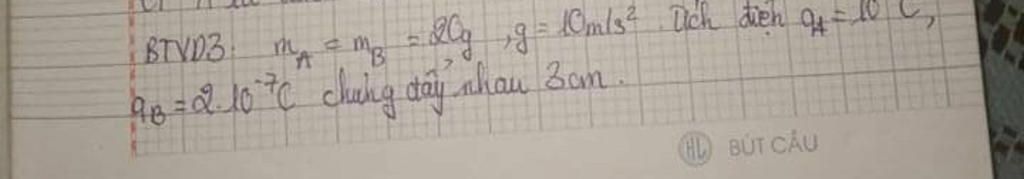 BTVD3: m_A = m_B = 20g, g = 10m/s² Tích điện q_A = 10 C,
q_B = 2.10⁻⁷C chúng đẩy nhau 3cm.
HL BÚT CẦU